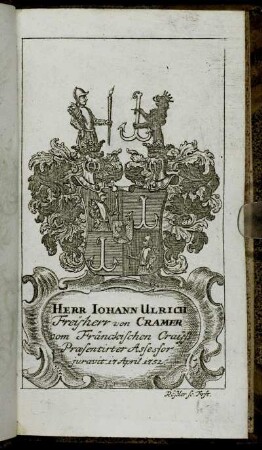 HERR IOHANN ULRICH
Freiherr von CRAMER
vom Fränckischen Craiß
Præsentirter Assessor
juravit 17 April 1752.